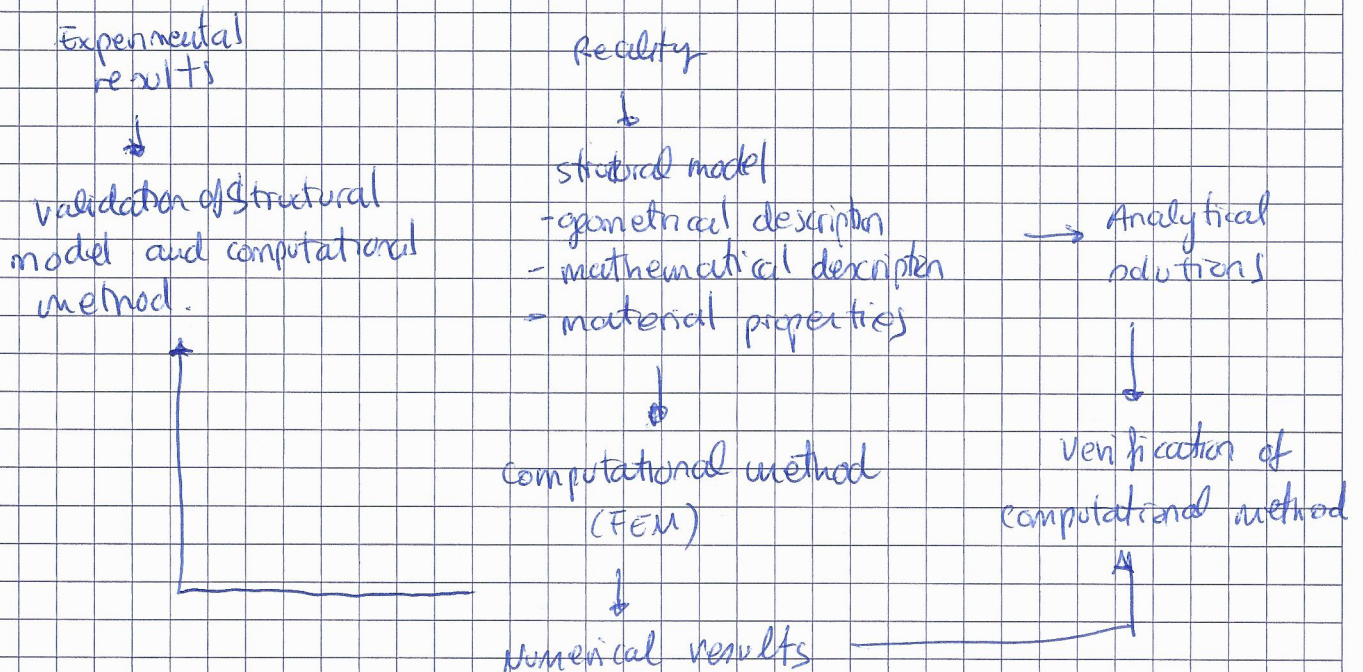 Experimental
results
validation of structural
model and computational
method.
Reality
structural model
- geometrical description
- mathematical description
- material properties
computational method
(FEM)
Numerical results
Analytical
solutions
Verification of
computational method